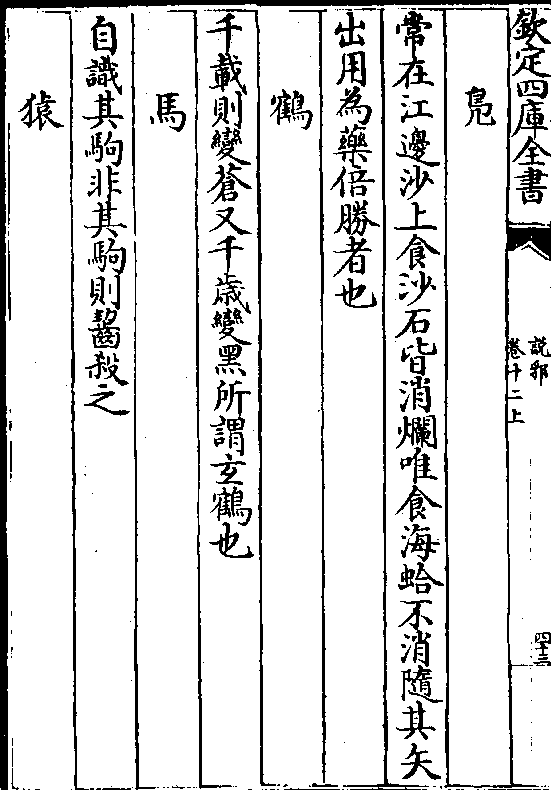 欽定四庫全書
說郛
卷十二上
四十三
鳬
常在江邊沙上食沙石皆消爛唯食海蛤不消隨其矢
出用為藥倍勝者也
鶴
千載則變蒼又千歳變黑所謂玄鶴也
馬
自識其駒非其駒則齧殺之
猿